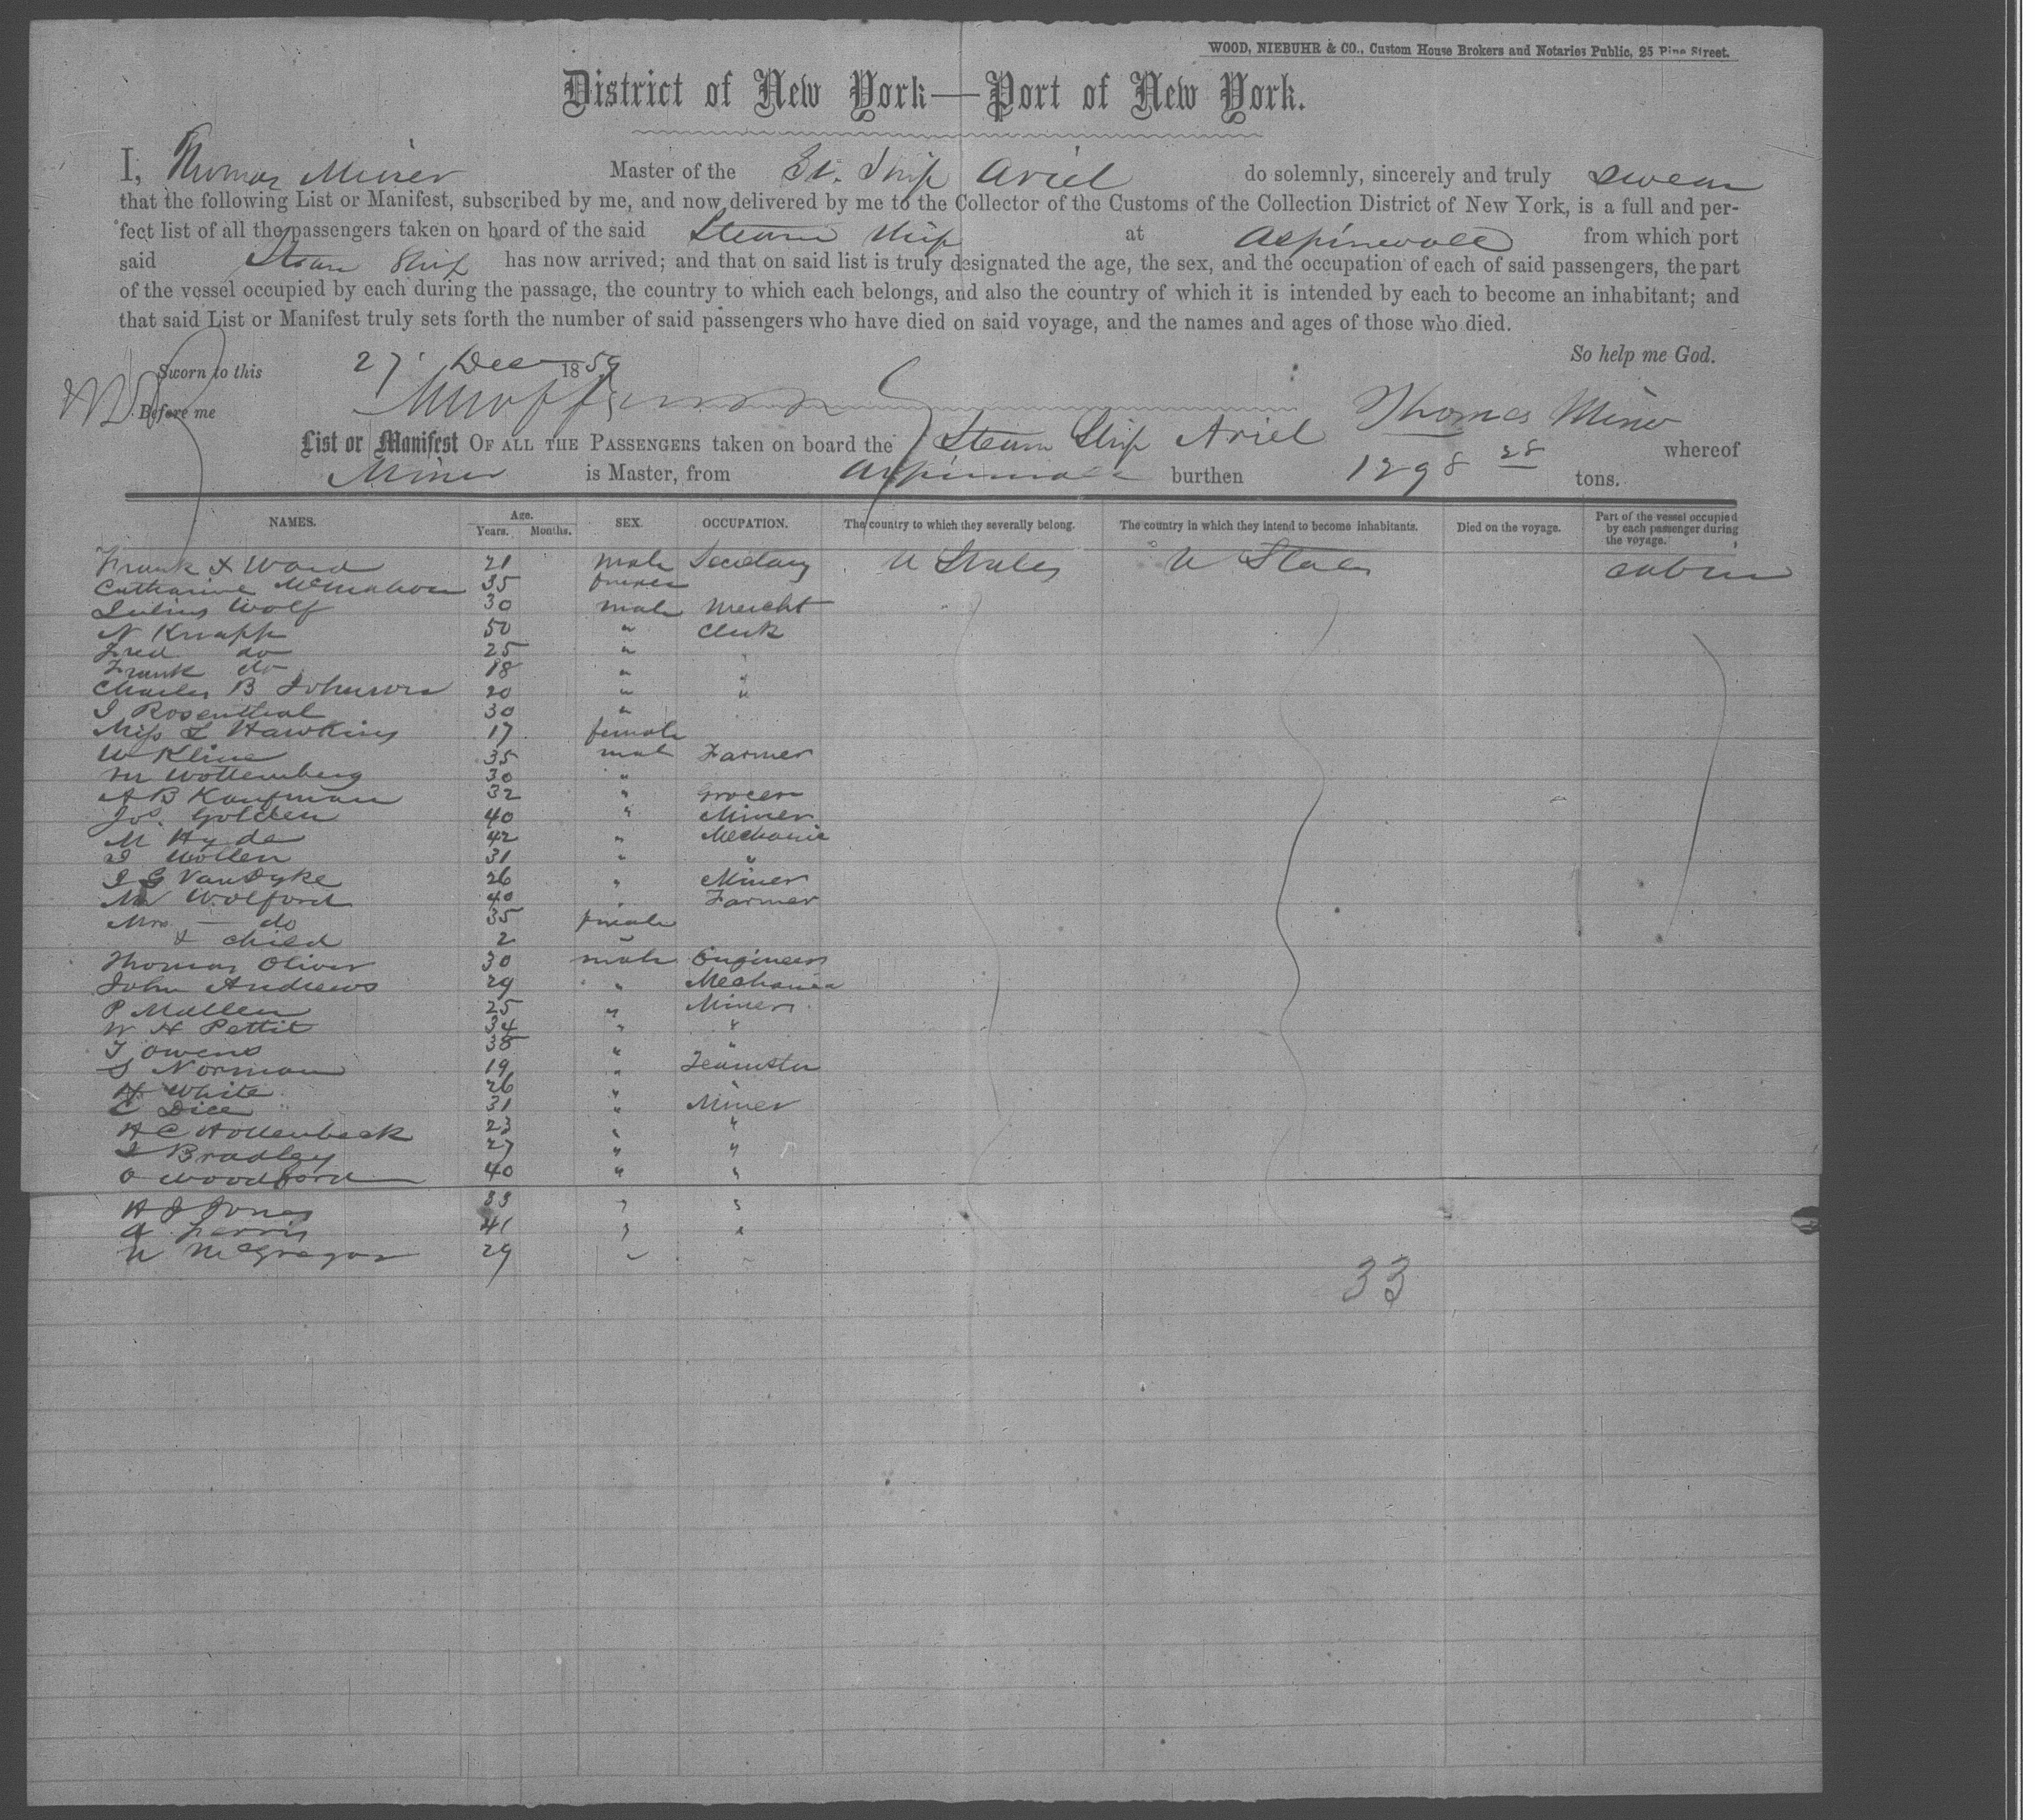 WOOD, NIEBUHR & CO., Custom House Brokers and Notaries Public, 25 Pine Street.
District of New York—Port of New York.
I, Thomas Miner Master of the St. Ship Ariel do solemnly, sincerely and truly swear
that the following List or Manifest, subscribed by me, and now delivered by me to the Collector of the Customs of the Collection District of New York, is a full and per-
fect list of all the passengers taken on board of the said Steam Ship at Aspinwall from which port
said Steam Ship has now arrived; and that on said list is truly designated the age, the sex, and the occupation of each of said passengers, the part
of the vessel occupied by each during the passage, the country to which each belongs, and also the country of which it is intended by each to become an inhabitant; and
that said List or Manifest truly sets forth the number of said passengers who have died on said voyage, and the names and ages of those who died.
So help me God.
Sworn to this 27 Dec 1859
Before me
Thomas Miner
List or Manifest OF ALL THE PASSENGERS taken on board the Steam Ship Ariel whereof
Miner is Master, from Aspinwall burthen 1298 28 tons.
NAMES. Age. Years. Months. SEX. OCCUPATION. The country to which they severally belong. The country in which they intend to become inhabitants. Died on the voyage. Part of the vessel occupied by each passenger during the voyage.
Frank & Ward 21 male Secretary U States U States cabin
Catharine McMahon 35 female
Julius Wolf 30 male Mercht
N Knapp 50 " Clerk
Fred do 25 "
Frank do 18 " "
Charles B Johnson 20 " "
I Rosenthal 30 "
Miss L Hawkins 17 female
W Kline 35 male Farmer
M Wottemberg 30 "
A B Kaufman 32 " Grocer
Jos. Golden 40 " Miner
M Hyde 42 " Mechanic
I Wollen 31 " "
I G VanDyke 26 " Miner
Mr Wolford 40 " Farmer
Mrs — do 35 female
& child 2 "
Thomas Oliver 30 male Engineer
John Andrews 29 " Mechanic
P Mullen 25 " Miner
W H Pettit 34 " "
T Owens 38 " "
S Norman 19 " Teamster
H White 26 " "
C Dice 31 " Miner
H C Hollenbeck 23 " "
I Bradley 27 " "
O Woodford 40 " "
H J Jones 33 " "
A Ferris 41 " "
N McGregor 29 " "
33